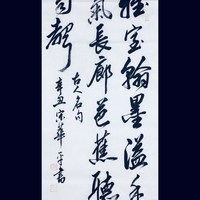 雅室翰墨溢香
氣長廊芭蕉聽
雨聲
古人名句
辛丑宗華平書